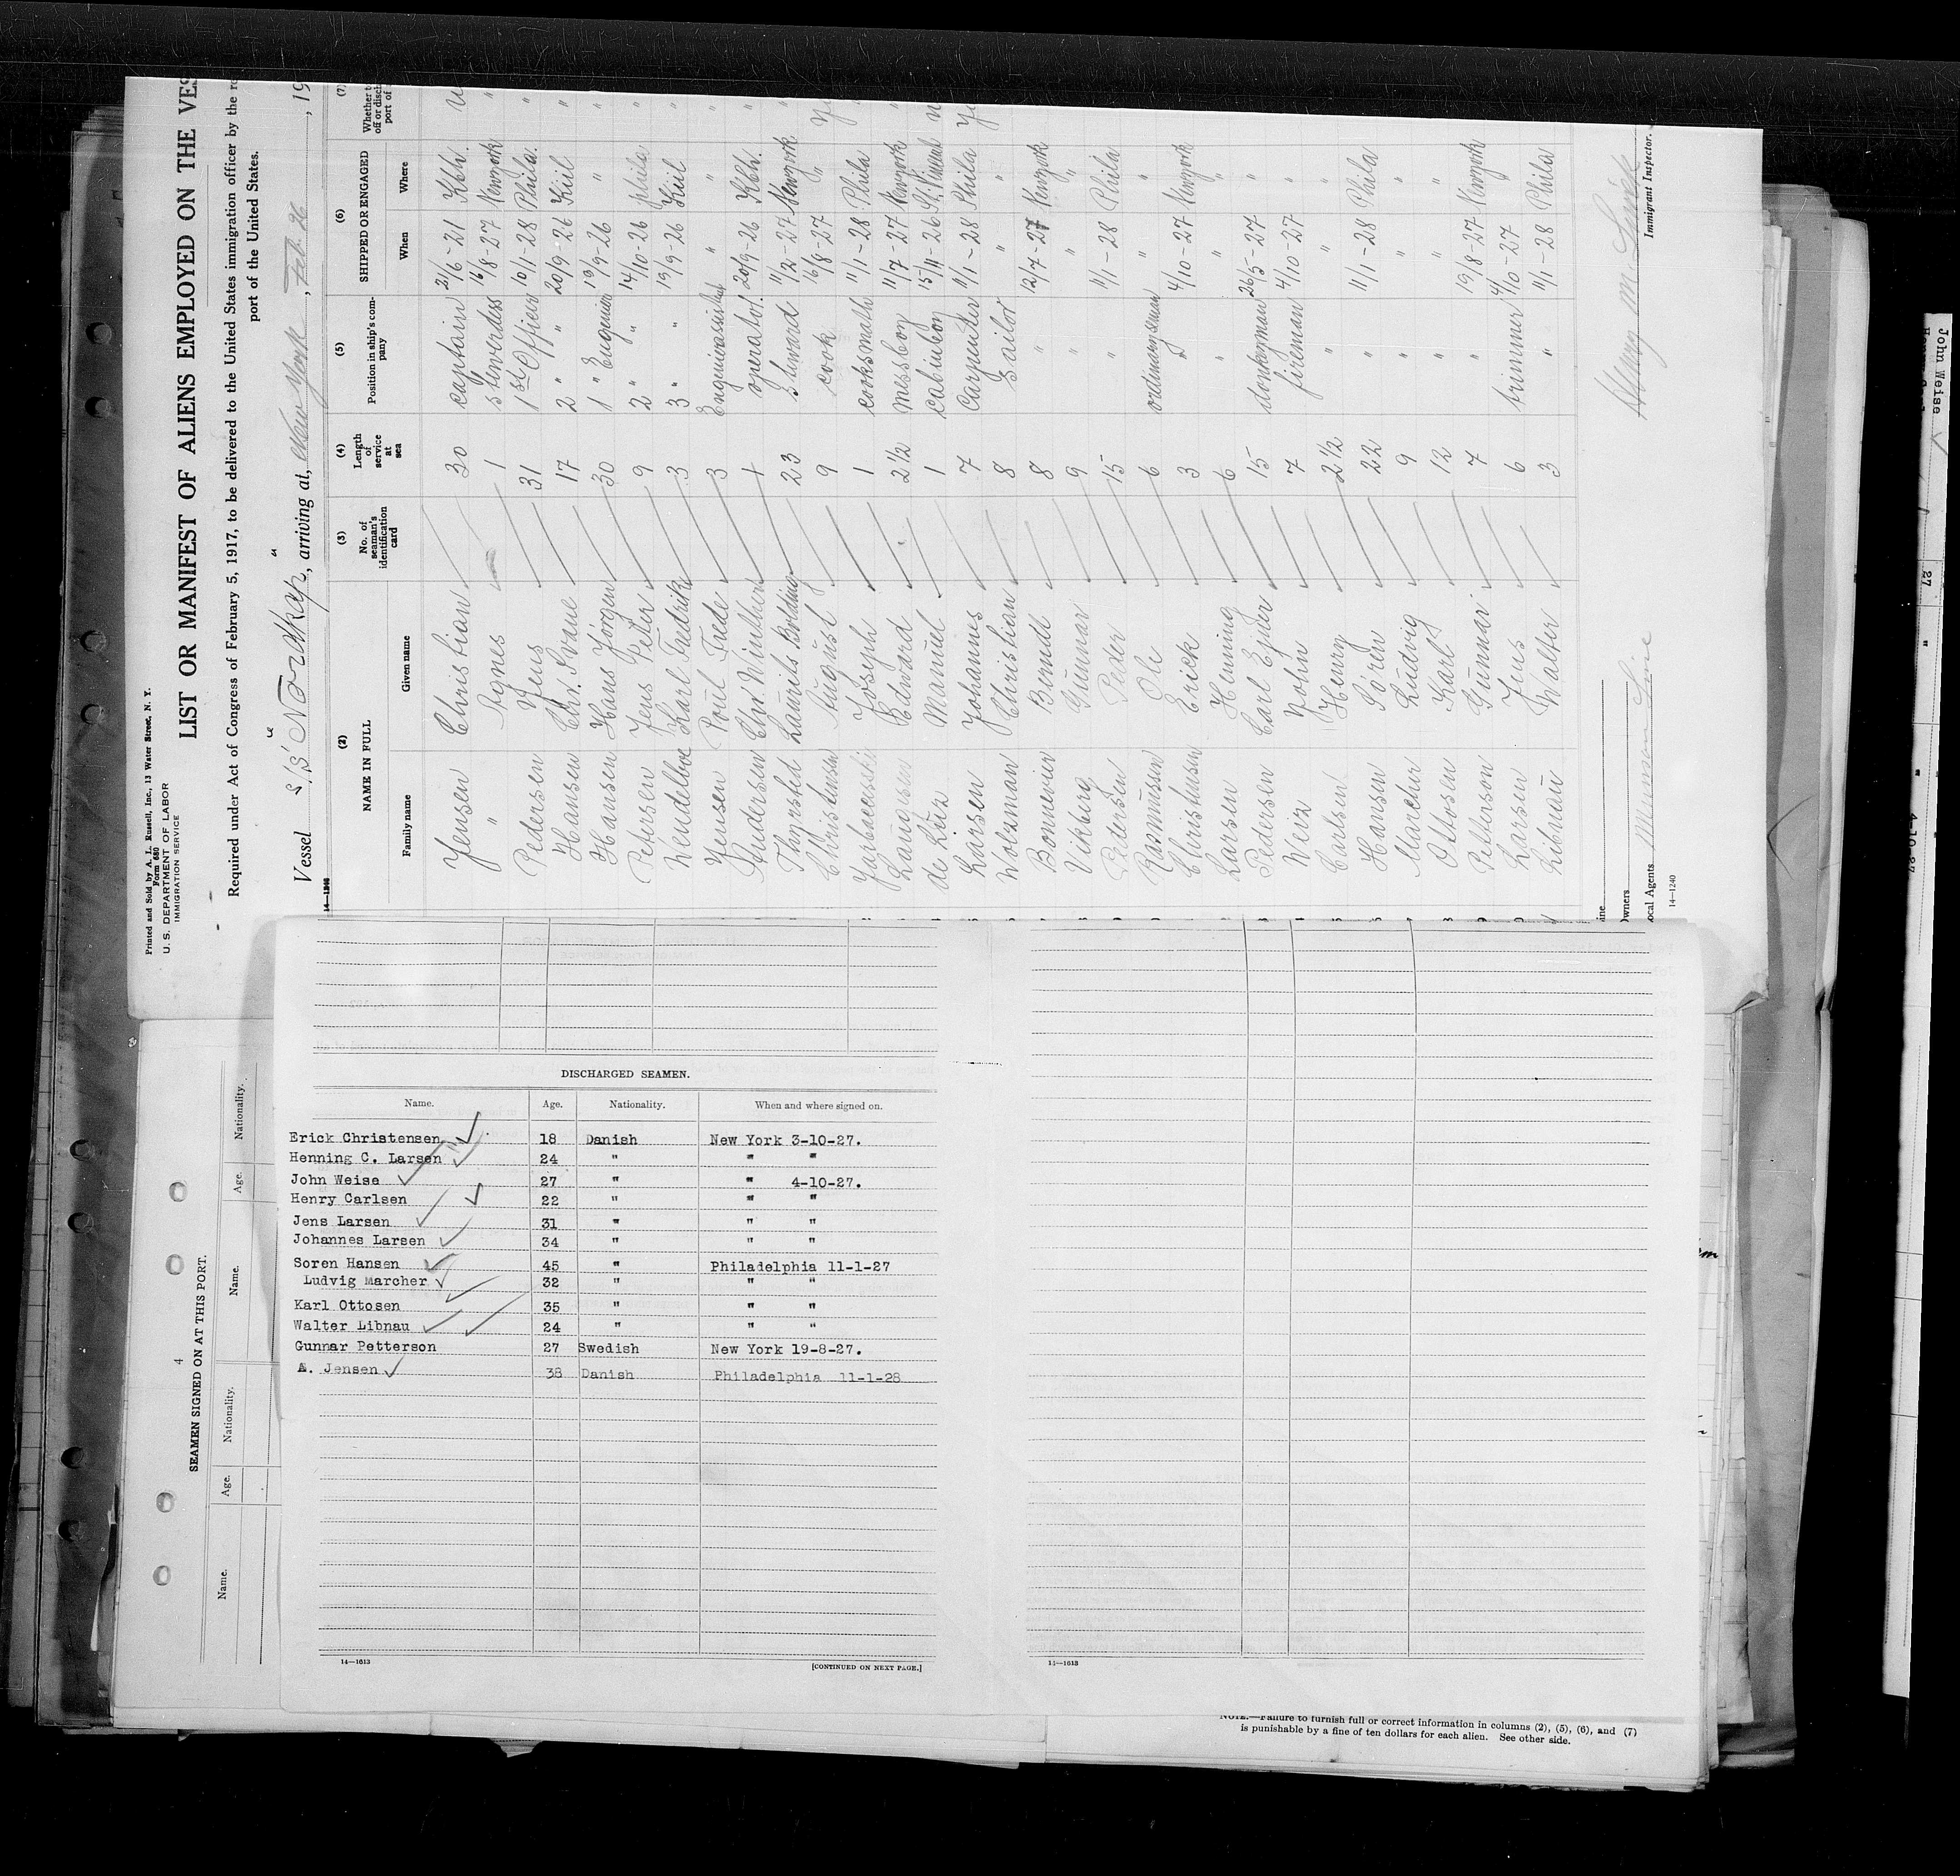 Printed and Sold by A. L. Russell, Inc., 13 Water Street, N. Y.
Form 680
U. S. DEPARTMENT OF LABOR
IMMIGRATION SERVICE
LIST OR MANIFEST OF ALIENS EMPLOYED ON THE VES
Required under Act of Congress of February 5, 1917, to be delivered to the United States immigration officer by the re
port of the United States.
Vessel S/S "Nordkap", arriving at New York, Feb. 26, 19
14—1240
(2) (3) (4) (5) (6) (7)
NAME IN FULL No. of seaman's identification card Length of service at sea Position in ship's company SHIPPED OR ENGAGED Whether to
off or disch
port of
Family name Given name When Where
Jensen Christian 30 captain 21/6-21 Kbh.
" Agnes 1 stewerdess 16/8-27 Newyork "
Pedersen Jens 31 1st Officer 10/1-28 Phila. "
Hansen Chr. Svane 17 2 " " 20/9-26 Kiil "
Hansen Hans Jörgen 30 1 " Engenier 19/9-26 " "
Petersen Jens Peter 9 2 " " 14/10-26 phila "
Wendelboe Karl Fredrik 3 3 " " 19/9-26 Kiil "
Jensen Poul Frede 3 Engenierassistent " " "
Andersen Chr. Winther 1 operator. 20/9-26 Kbh. "
Thyrsted Laurits Bolding 23 Steward 11/2-27 Newyork "
Christensen August 9 cook 16/8-27 "
Joseph 1 cooksmath 11/1-28 Phila
Edward 2 1/2 messboy 11/7-27 Newyork "
Manuel 1 cabinboy 15/4-26 St. Vincent
Larsen Johannes 7 Carpenter 11/1-28 Phila
Wolzman Christian 8 Sailor " "
Bonnevier Berndt 8 " 12/7-27 Newyork
Vikberg Gunnar 9 " " "
Pedersen Peder 15 " 11/1-28 Phila
Rasmussen Ole 6 ordinaryseman " "
Christensen Erick 3 do 4/10-27 Newyork
Larsen Henning 6 " " "
Pedersen Carl Ejner 15 donkeyman 26/5-27 "
Weiz John 7 fireman 4/10-27 "
Carlsen Henry 2 1/2 " " "
Hansen Sören 22 " 11/1-28 Phila
Marcher Ludvig 9 " " "
Ottosen Karl 12 " " "
Petterson Gunnar 7 " 19/8-27 Newyork
Larsen Jens 6 trimmer 4/10-27 "
Libnau Walter 3 " 11/1-28 Phila
ine
wners
ocal Agents Munson Line
Immigrant Inspector.
14—1240
4
SEAMEN SIGNED ON AT THIS PORT.
Name. Age. Nationality. Name. Age. Nationality.
DISCHARGED SEAMEN.
Name. Age. Nationality. When and where signed on.
Erick Christensen 18 Danish New York 3-10-27.
Henning C. Larsen 24 " " "
John Weise 27 " " 4-10-27.
Henry Carlsen 22 " " "
Jens Larsen 31 " " "
Johannes Larsen 34 " " "
Soren Hansen 45 " Philadelphia 11-1-27
Ludvig Marcher 32 " " "
Karl Ottosen 35 " " "
Walter Libnau 24 " " "
Gunnar Petterson 27 Swedish New York 19-8-27.
A. Jensen 38 Danish Philadelphia 11-1-28
14—1613 [CONTINUED ON NEXT PAGE.]
14—1613
NOTE.—Failure to furnish full or correct information in columns (2), (5), (6), and (7)
is punishable by a fine of ten dollars for each alien. See other side.
John Weise
27 " " 4-10-27